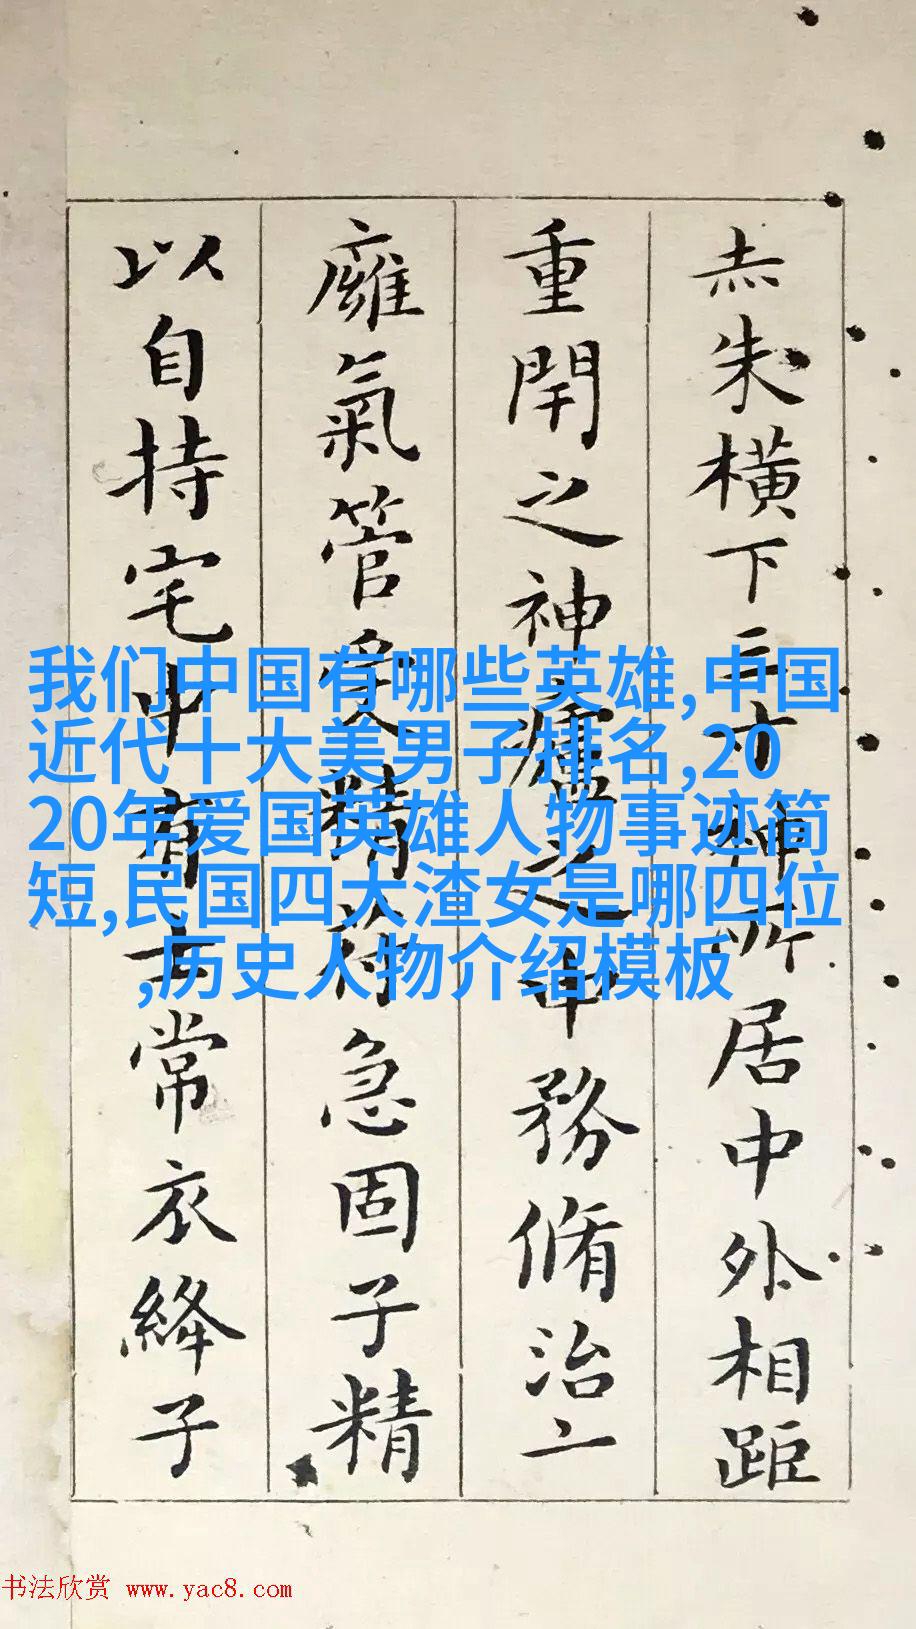 赤朱橫下三寸神所居中外相距
重閇之神廬之中務脩治
廱氣管受精符急固子精
以自持宅中有士常衣絳子
我们中国有哪些英雄,中国
近代十大美男子排名,20
20年爱国英雄人物事迹简
短,民国四大渣女是哪四位
,历史人物介绍模板
书法欣赏 www.yac8.com